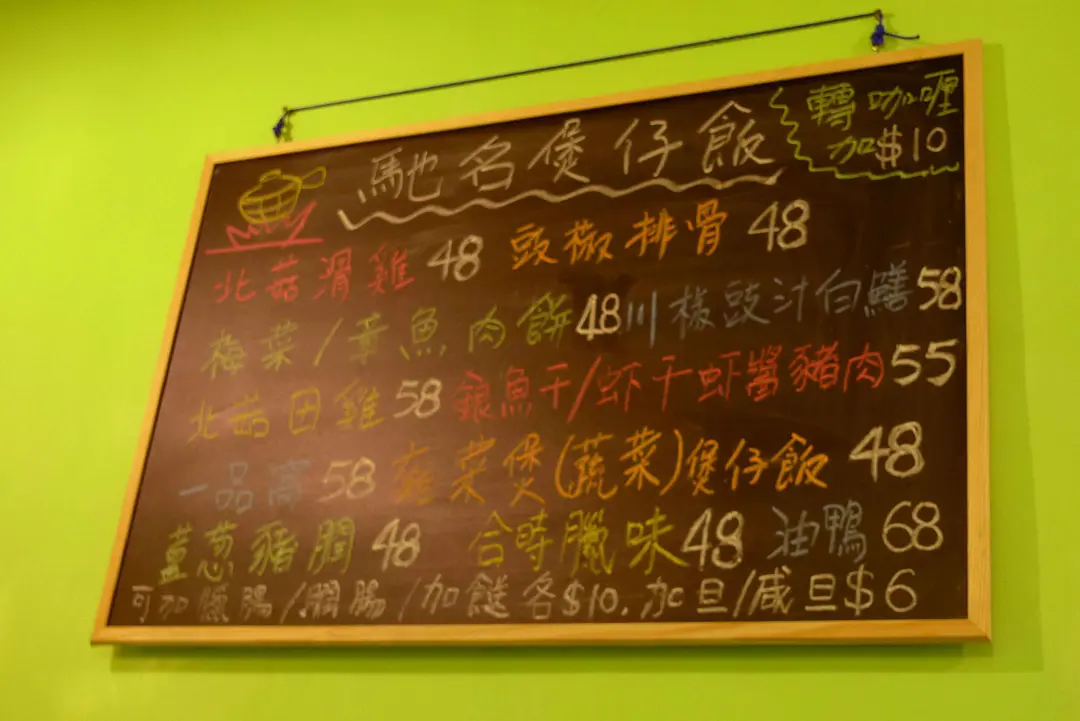 馳名煲仔飯 轉咖喱
加$10
北菇滑雞 48 豉椒排骨 48
梅菜/章魚肉餅 48 川椒豉汁白鱔 58
北菇田雞 58 銀魚干/虾干虾醬豬肉 55
一品窩 58 菜煲(蔬菜)煲仔飯 48
薑葱豬膶 48 合時臘味 48 油鴨 68
可加臘腸/膶腸/加餸各$10.加旦/咸旦$6